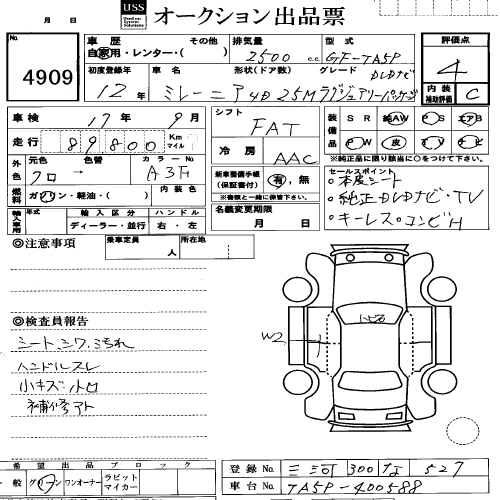 月 日
USS
オークション出品票
No.
4909
車歴 その他
自家用・レンター・( )
排気量
2500 c.c.
型式
GF-TA5P
評価点
4
初度登録年
12年
車名
ミレーニア
形状(ドア数)
4D
グレード
DVDナビ
25M ラグジュアリーパッケージ
内装
補助評価
C
車検 17年 9月
走行 89800 Km マイル
シフト
FAT
冷房
AAC
装備品
SR 純AW PS エアB
PW 皮 TV ナビ
※純正品に限り該当に○をつけて下さい
外色
元色 色替 カラーNo
クロ → A3H
燃料
ガソリン・軽油・( )
内装色
新車整備手帳
(保証書付)
有・無
※書類と一緒に保管下さい。
名義変更期限
月 日
セールスポイント
○本皮シート
○純正DVDナビ・TV
○キーレス○コンビH
輸入車用
年式 輸入区分 ハンドル
ディーラー・並行 右・左
◎注意事項
乗車定員
人
所在地
◎検査員報告
シート、シワ、汚れ
ハンドルスレ
小キズ
補修アト
W2
希望出品ブロック
一般 ワンオーナー ラビットマイカー
登録No. 三河 300 527
車台No. TA5P-400588